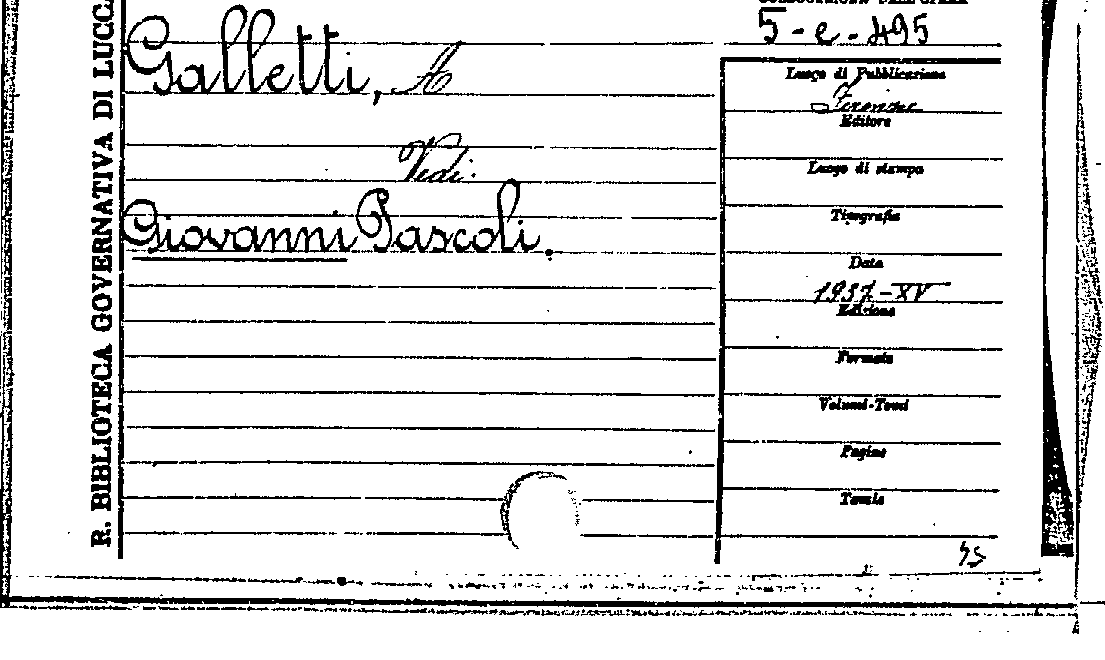 R. BIBLIOTECA GOVERNATIVA DI LUCCA
5-e-495
Galletti, A
Vedi:
Giovanni Pascoli.
Luogo di Pubblicazione
Firenze
Editore
Luogo di stampa
Tipografia
Data
1937-XV
Edizione
Formato
Volumi-Tomi
Pagine
Tavole